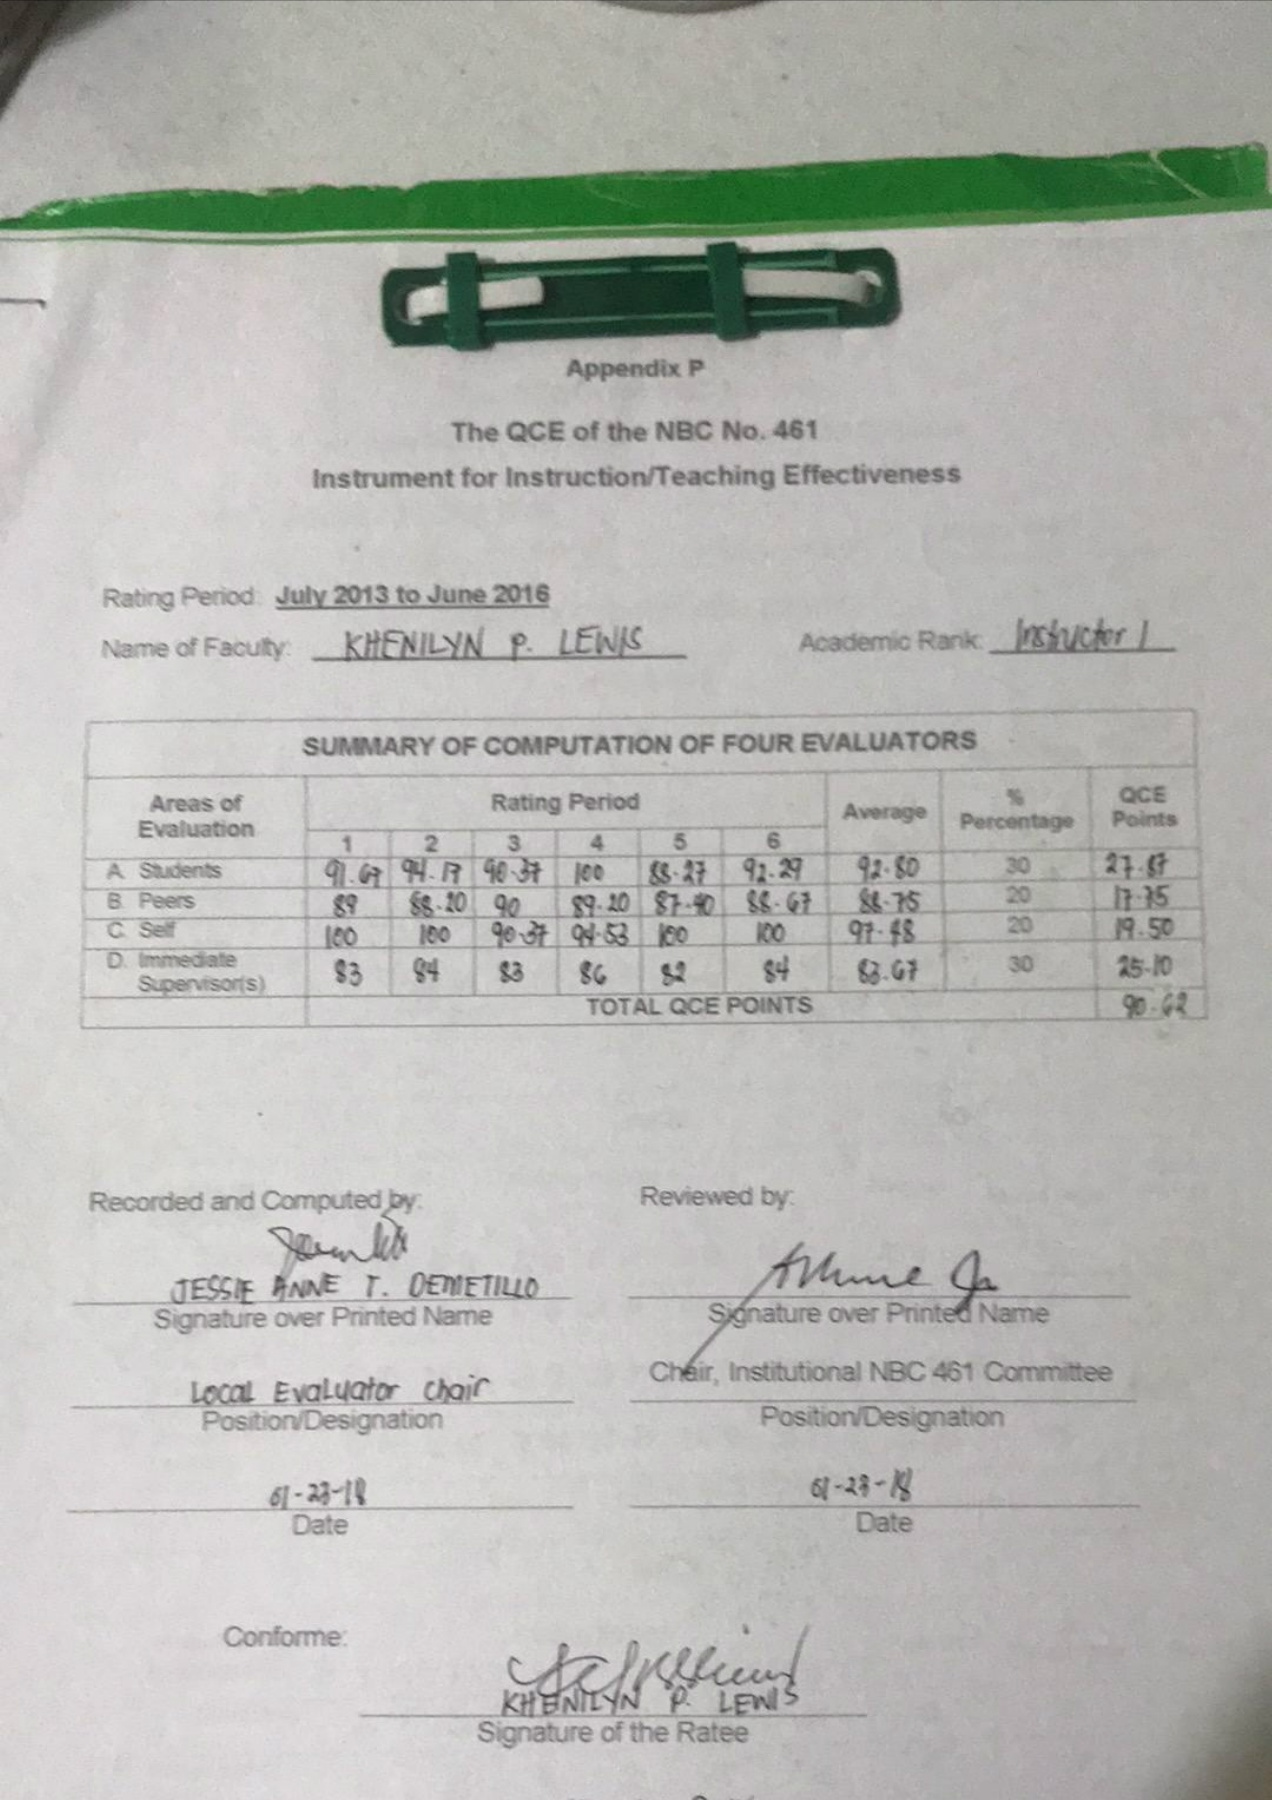 Appendix P
The QCE of the NBC No. 461
Instrument for Instruction/Teaching Effectiveness
Rating Period: July 2013 to June 2016
Name of Faculty: KHENILYN P. LEWIS Academic Rank: Instructor I
SUMMARY OF COMPUTATION OF FOUR EVALUATORS
Areas of Evaluation Rating Period Average % Percentage QCE Points
1 2 3 4 5 6
A. Students 91.67 94.17 90.37 100 88.27 92.29 92.80 30 27.87
B. Peers 89 88.20 90 89.20 87.40 88.67 88.75 20 17.75
C. Self 100 100 90.37 94.53 100 100 97.48 20 19.50
D. Immediate Supervisor(s) 83 84 83 86 82 84 83.67 30 25.10
TOTAL QCE POINTS 90.62
Recorded and Computed by: Reviewed by:
JESSIE ANNE T. DEMETILLO
Signature over Printed Name Signature over Printed Name
Local Evaluator Chair Chair, Institutional NBC 461 Committee
Position/Designation Position/Designation
01-23-18 01-23-18
Date Date
Conforme:
KHENILYN P. LEWIS
Signature of the Ratee